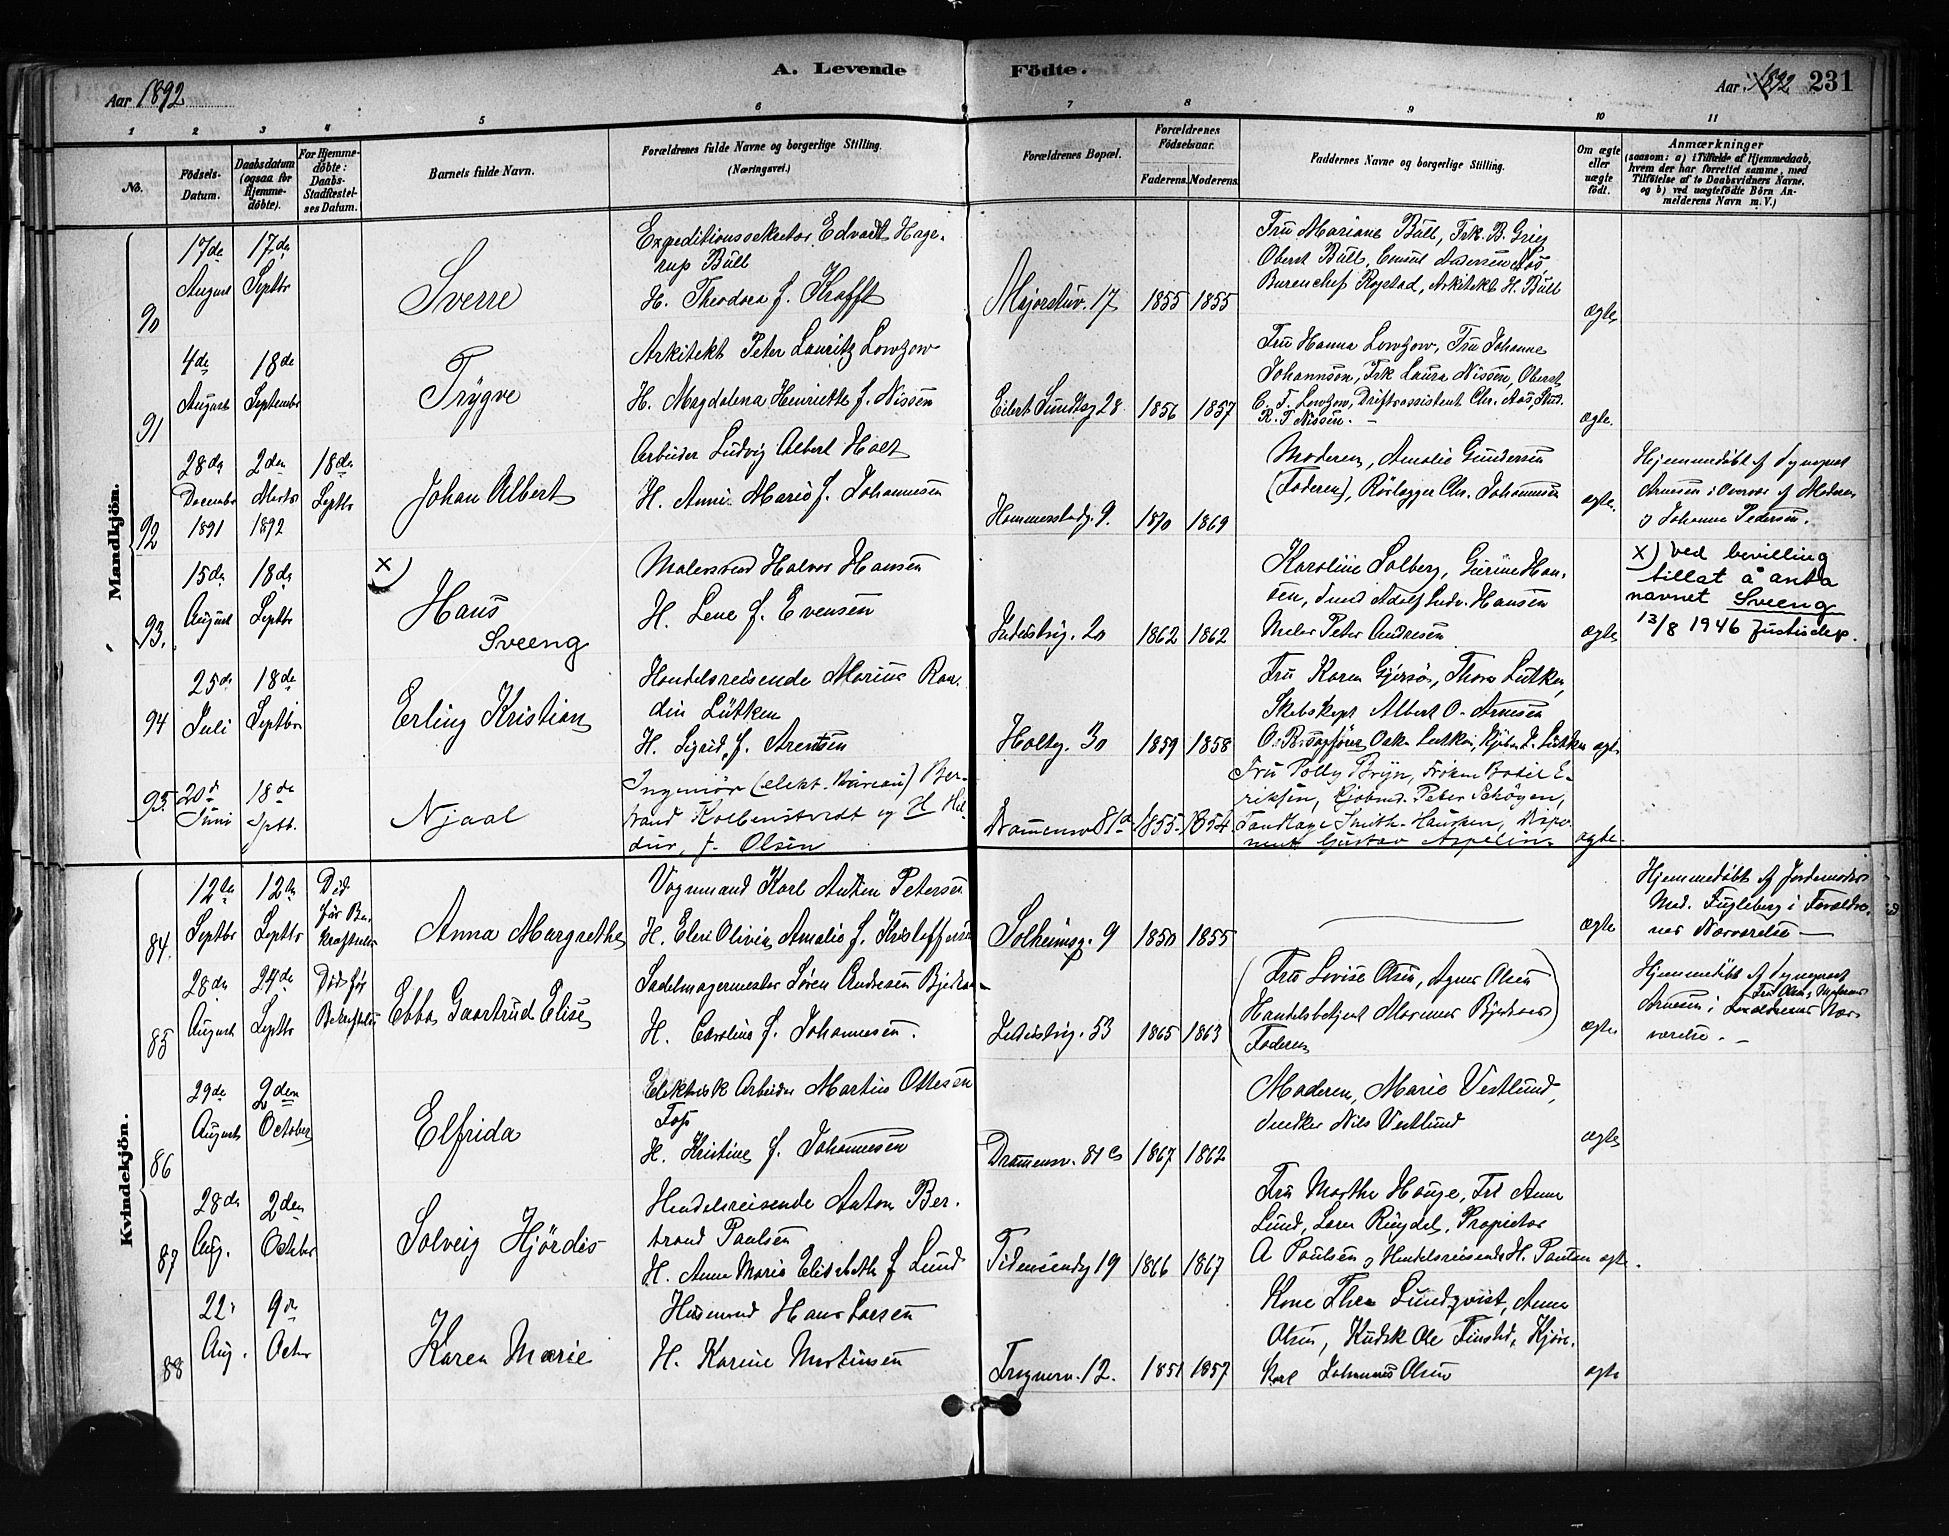 A. Levende Födte.
Aar 1892
Aar 1892 231
1 2 3 4 5 6 7 8 9 10 11
No.
Födsels-Datum.
Daabsdatum (ogsaa for Hjemme-döbte).
For Hjemme-döbte: Daabs-Stadfæstel-ses Datum.
Barnets fulde Navn.
Forældrenes fulde Navne og borgerlige Stilling.
(Næringsvei.)
Forældrenes Bopæl.
Forældrenes Födselsaar.
Faderens. Moderens.
Faddernes Navne og borgerlige Stilling.
Om ægte eller uægte födt.
Anmærkninger
(saasom: a) i Tilfælde af Hjemmedaab, hvem der har forrettet samme, med Tilföielse af to Daabsvidners Navne, og b) ved uægtefödte Börn Anmelderens Navn m. V.)
Mandkjön.
90
17de August
17de Septbr
Sverre
Expeditionssekretær Edvard Hage-
rup Bull
H. Theodora f. Krafft
Majorstuv. 17
1855 1855
Fru Mariane Bull, Frk. B. Grieg
Oberst Bull, Andersen Aas
Bureauchef Rogstad, Arkitekt H. Bull
ægte
91
4de August
18de September
Trygve
Arkitekt Peter Lauritz Lowzow
H. Magdalena Henriette f. Nissen
Eilert Sundtsg 28
1856 1857
Fru Hanna Lowzow, Fru Johanne
Johannsen, Frk Laura Nissen, Oberst
C. F. Lowzow, Driftsassistent Chr. Aas, Stud.
R. T Nissen.
ægte.
92
28de December 1891
2den Marts 1892
18de Septbr
Johan Albert
Arbeider Ludvig Albert Holt
H. Anne Marie f. Johannesen
Hammerstadg. 9.
1870 1869
Moderen, Amalie Gundersen
(Faderen), Rörlægger Chr. Johannesen
ægte.
Hjemmedöbt af
Arnesen i Overvær af Moderen
og Johanne Pedersen.
93.
15de August
18de Septbr
x)
Hans
Sveeng
Malersvend Halvor Hansen
H. Lene f. Evensen
Industrig. 20
1862 1862
Karoline Solberg, Gurine Han-
sen, Adolf Hansen
Maler Peter Andresen
ægte
x) ved bevilling
tillat å anta
navnet Sveeng
13/8 1946 Justisdep.
94
25de Juli
18de Septbr
Erling Kristian
Handelsreisende Marius Ran-
din Lütken
H. Sigrid, f. Arentsen
Holteg. 30
1859 1858
Fru Karen Gjersøe, Thora Lütken,
Skibskapt Albert O. Arnesen
ægte
95.
20de Juni
18de Sptb.
Njaal
Ingeniør (elekt. Bureau) Ber-
trand Kolbenstvedt og H. Hal-
dur, f. Olsen
Drammensv 81d
1855 1854
Fru Polly Bryn, Frøken Bodil E-
riksen, Kjøbmd. Peter Schøyen,
Tandlæge Smith-Hansen, Dispo-
nent Gustav Aspelin.
ægte.
Kvindekjön.
84.
12te Septbr
12te Septbr
Död för Be-
kræftelse
Anna Margrethe
Vognmand Karl Anton Petersen
H. Eleri Olivia Amalie f. Kristoffersen
Solheimsg. 9
1850 1855
ægte
Hjemmedöbt af Jordemoder
Mad. Fugleberg i Forældre-
nes Nærværelse
85
28de August
24de Septbr
Död för
Bekræftelse
Ebba Gaartrud Elise
Sadelmagermester Sören Andresen Bjerknæs
H. Caroline f. Johannesen.
Industrig. 53
1865 1863
(Fru Lovise Olsen, Agnes Olsen
Handelsbetjent Marinus Bjerknæs)
Faderen
ægte
Hjemmedöbt af
Arnesen i Fru Olsens, Forældrenes Nær-
værelse.
86
29de August
2den October
Elfrida
Elektrisk Arbeider Martius Ottesen
H. Kristine f. Johannesen
Drammensv. 81e
1867 1862
Moderen, Marie Vestlund,
Snedker Nils Vestlund
ægte
87
28de Aug.
2den October
Solveig Hjördis
Handelsreisende Anton Ber-
trand Paulsen
H. Anne Marie Elisabeth f Lund
Tidemandsg 19
1866 1867
Fru Marthe Hauge, Frk Anna
Lund, Lars Ringdal, Proprietær
A Paulsen og Handelsreisende H. Paulsen
ægte.
88
22. Aug.
9de Octbr
Karen Marie
Husmand Hans Larsen
H. Karine Martinsen
Frognerv. 12.
1851 1857
Kone Thea Lundqvist, Anna
Olsen, Kudsk Ole Finstad,
Karl Johannes Olsen
ægte